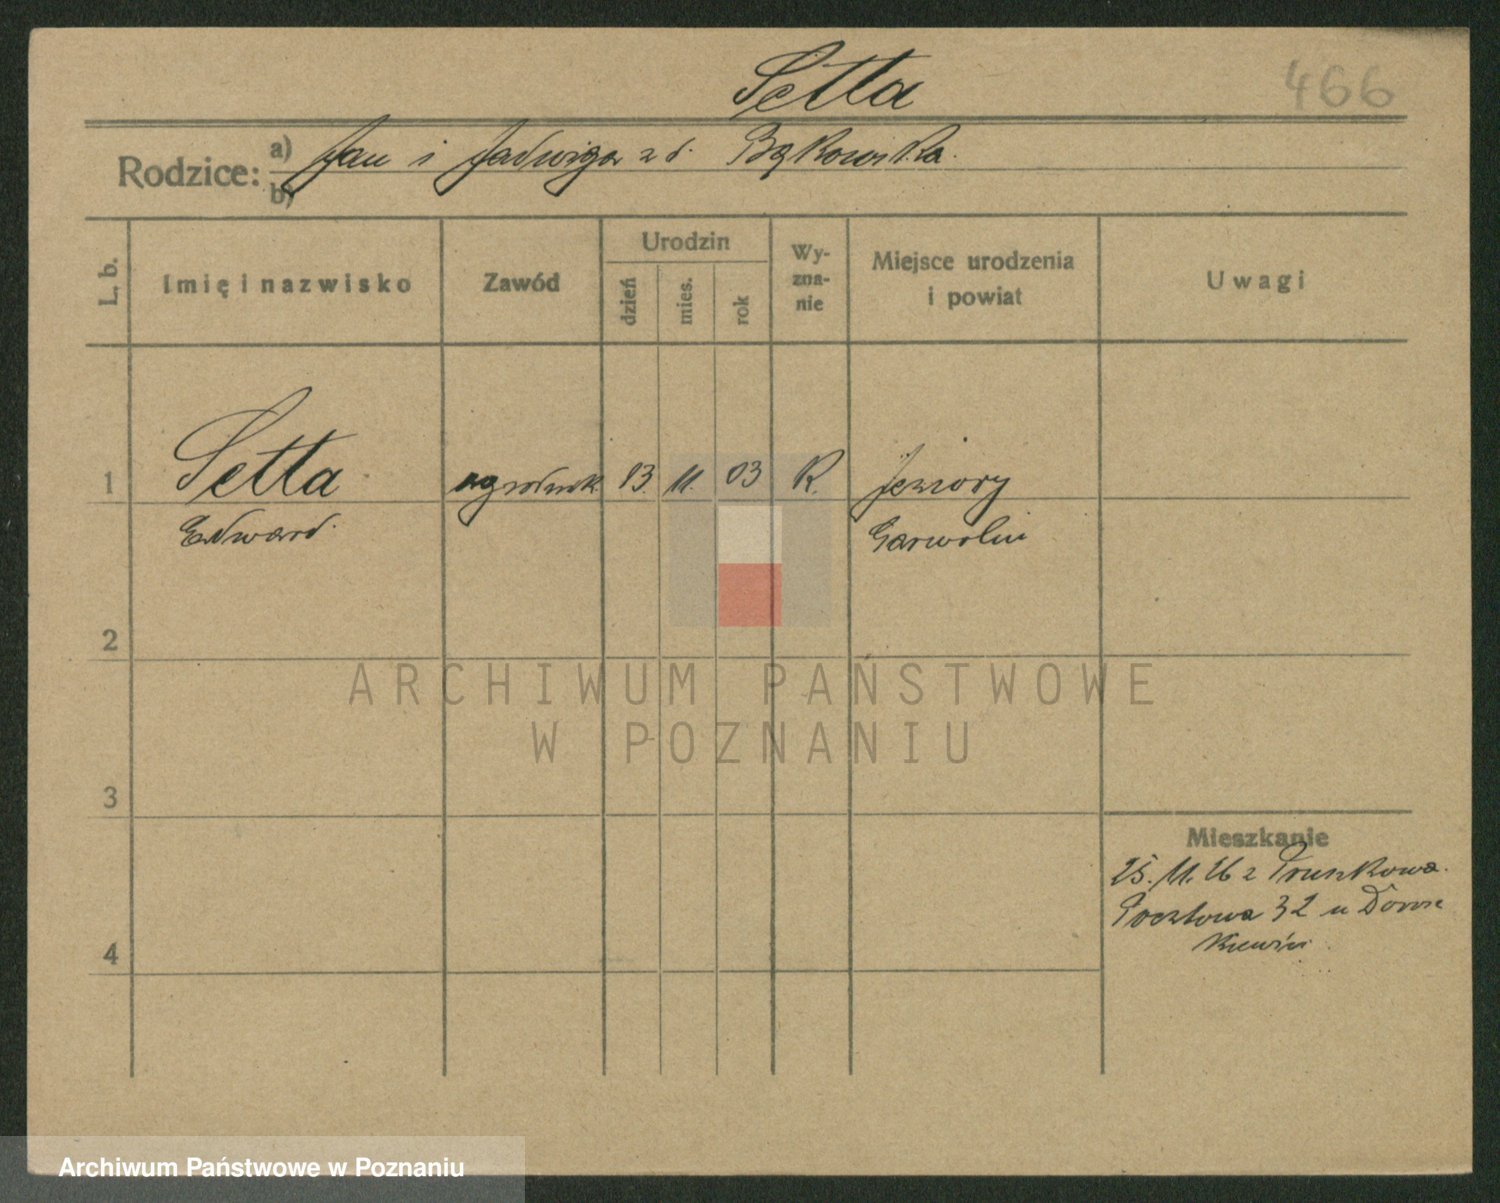 Setla
466
Rodzice:
a) Jan i Jadwiga z d. Bąkowska.
b)
L. b.
Imię i nazwisko
Zawód
Urodzin
dzień
mies.
rok
Wy-
zna-
nie
Miejsce urodzenia
i powiat
Uwagi
1 Setla ogrodnik 13. 11. 03 R. Jeziory
Edward. Garwolin
2
3
4
Mieszkanie
25. 11. 26 z Pruszkowa.
Pocztowa 32 u
ARCHIWUM PAŃSTWOWE
W POZNANIU
Archiwum Państwowe w Poznaniu